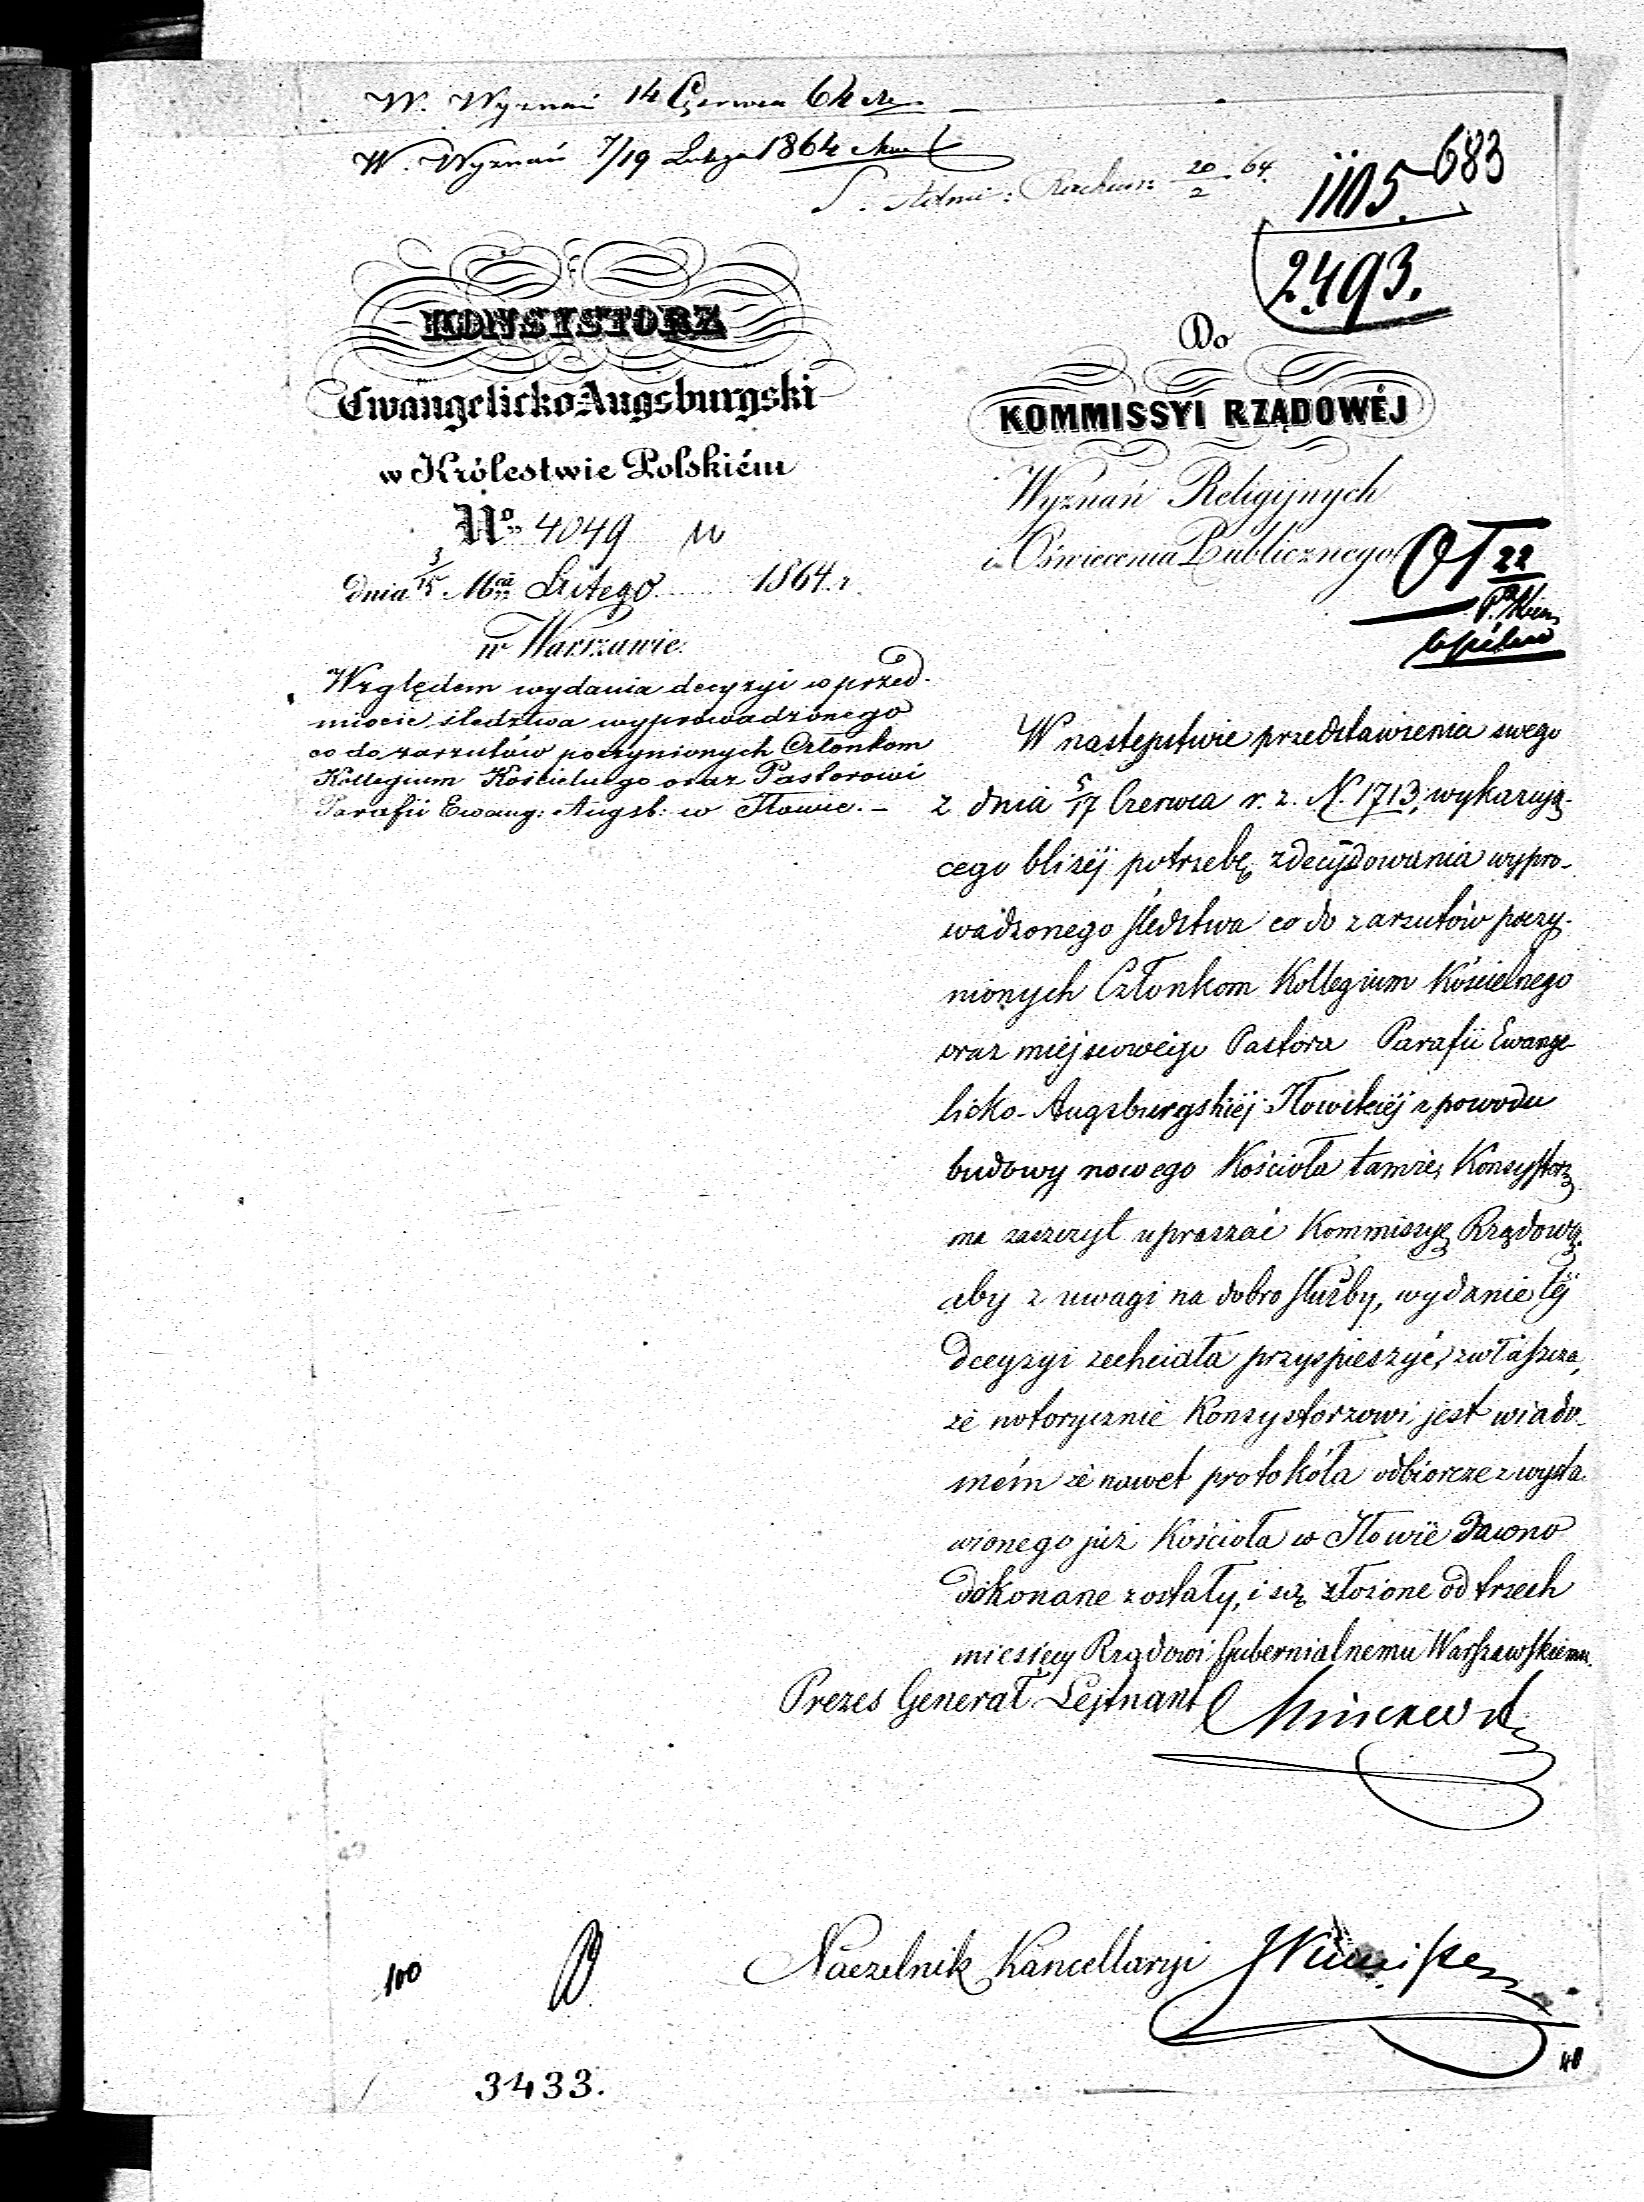 W. Wyznań 14 Czerwca 64
W. Wyznań 7/19 Lutego 1864
Rachun: 20/2 64.
683
1105.
2493.
KONSYSTORZ
Ewangelicko-Augsburgski
w Królestwie Polskiém
No. 4049
dnia 3/15 Mca Lutego 1864. r.
w Warszawie.
Względem wydania decyzyi w przed-
miocie śledztwa wyprowadzonego
co do zarzutów poczynionych Członkom
Kollegium Kościelnego oraz Pastorowi
Parafii Ewang: Augsb: w Iłowie. –
Do
KOMMISSYI RZĄDOWÉJ
Wyznań Religijnych
i Oświecenia Publicznego
22
W następstwie przedstawienia swego
z dnia 5/17 Czerwca r. z. N. 1713, wykazują-
cego bliżéj potrzebę zdecydowania wypro-
wadzonego śledztwa co do zarzutów poczy-
nionych Członkom Kollegium Kościelnego
oraz miejscowego Pastora Parafii Ewange-
licko-Augsburgskiéj Iłowskiéj z powodu
budowy nowego Kościoła tamże, Konsystorz
ma zaszczyt upraszać Kommissyę Rządową,
aby z uwagi na dobro służby, wydanie téj
decyzyi zechciała przyspieszyć, zwłaszcza,
że notorycznie Konsystorzowi jest wiado-
mém że nawet protokóła odbiorcze z wysta-
wionego już Kościoła w Iłowie dawno
dokonane zostały, i są złożone od trzech
miesięcy Rządowi Gubernialnemu Warszawskiemu.
Prezes Generał Lejtnant
Naczelnik Kancellaryi
100
3433.
40